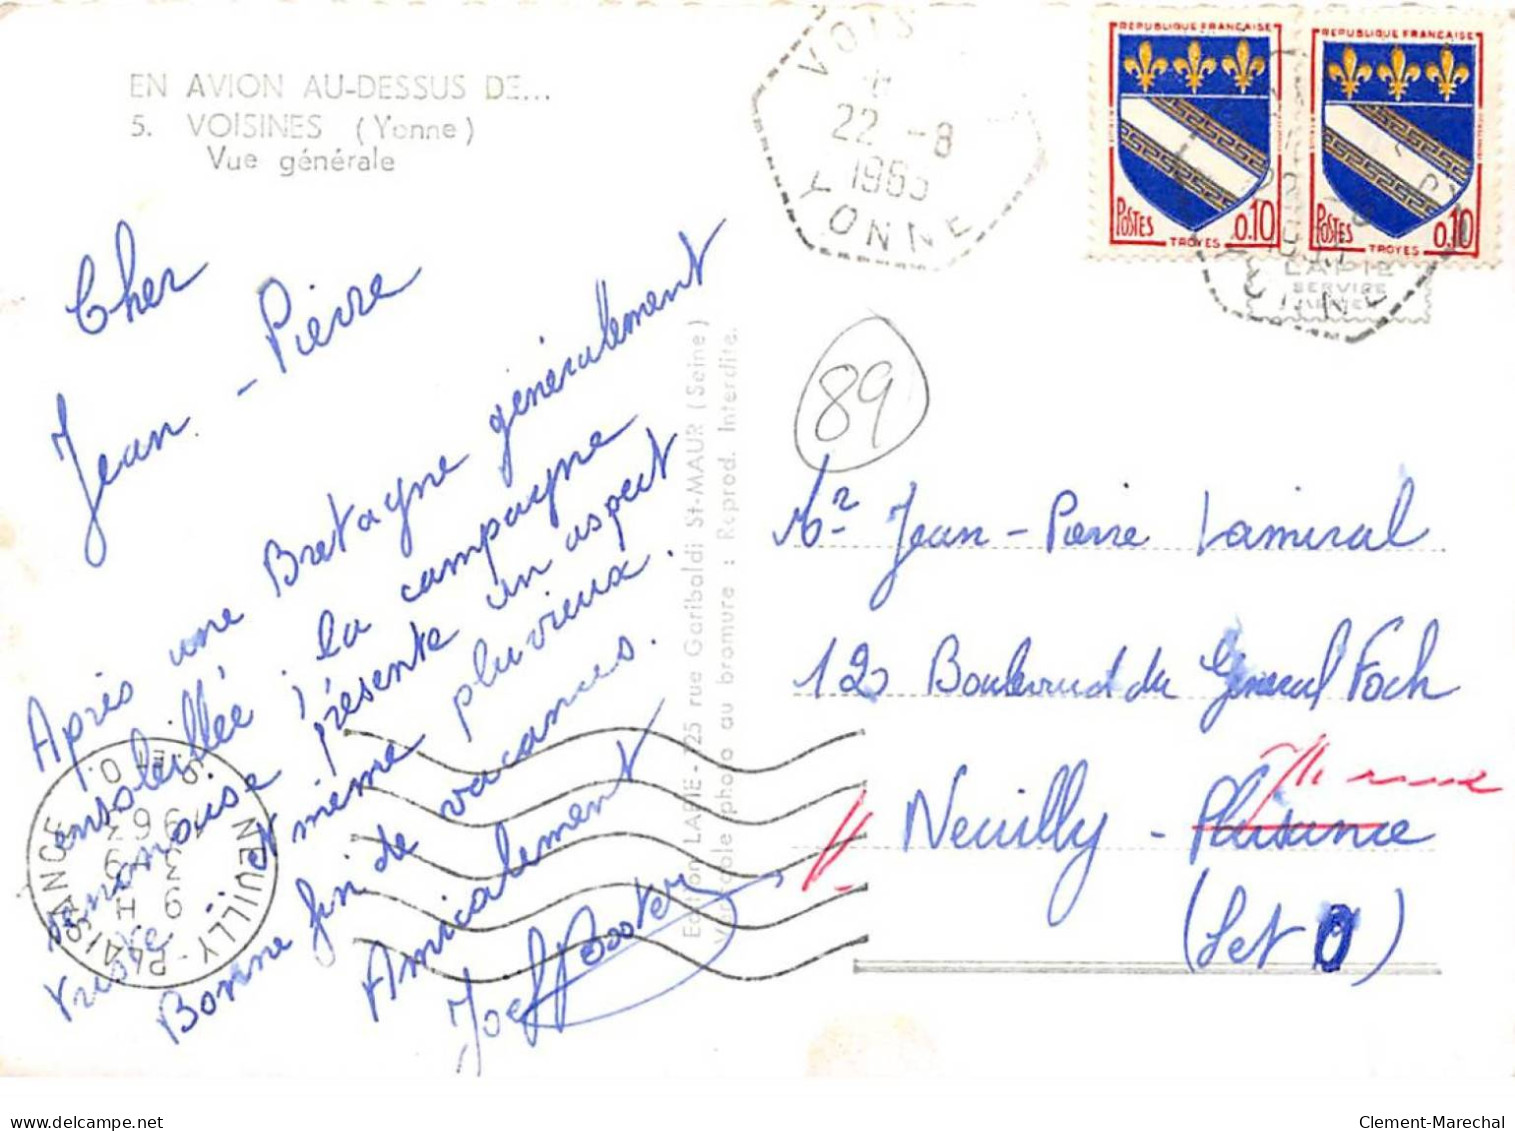 EN AVION AU-DESSUS DE...
5. VOISINES (Yonne)
Vue générale
VOIS
22 -8
1965
YONNE
REPUBLIQUE FRANCAISE
POSTES 0.10
TROYES
REPUBLIQUE FRANCAISE
POSTES 0.10
TROYES
LAPIE
SERVICE
Cher
Jean-Pierre
Après une Bretagne généralement
ensoleillée, la campagne
présente un aspect
triste et même pluvieux.
Bonne fin de vacances.
Amicalement
Joël
Edition LAPIE - 125 rue Garibaldi St-MAUR (Seine)
Véritable photo au bromure : Reprod. Interdite.
NEUILLY-PLAISANCE
S. ET O.
89
Mr Jean-Pierre Lamiral
12 Boulevard du Général Foch
Neuilly - Plaisance
(S et O)
delcampe.net
Clement-Marechal